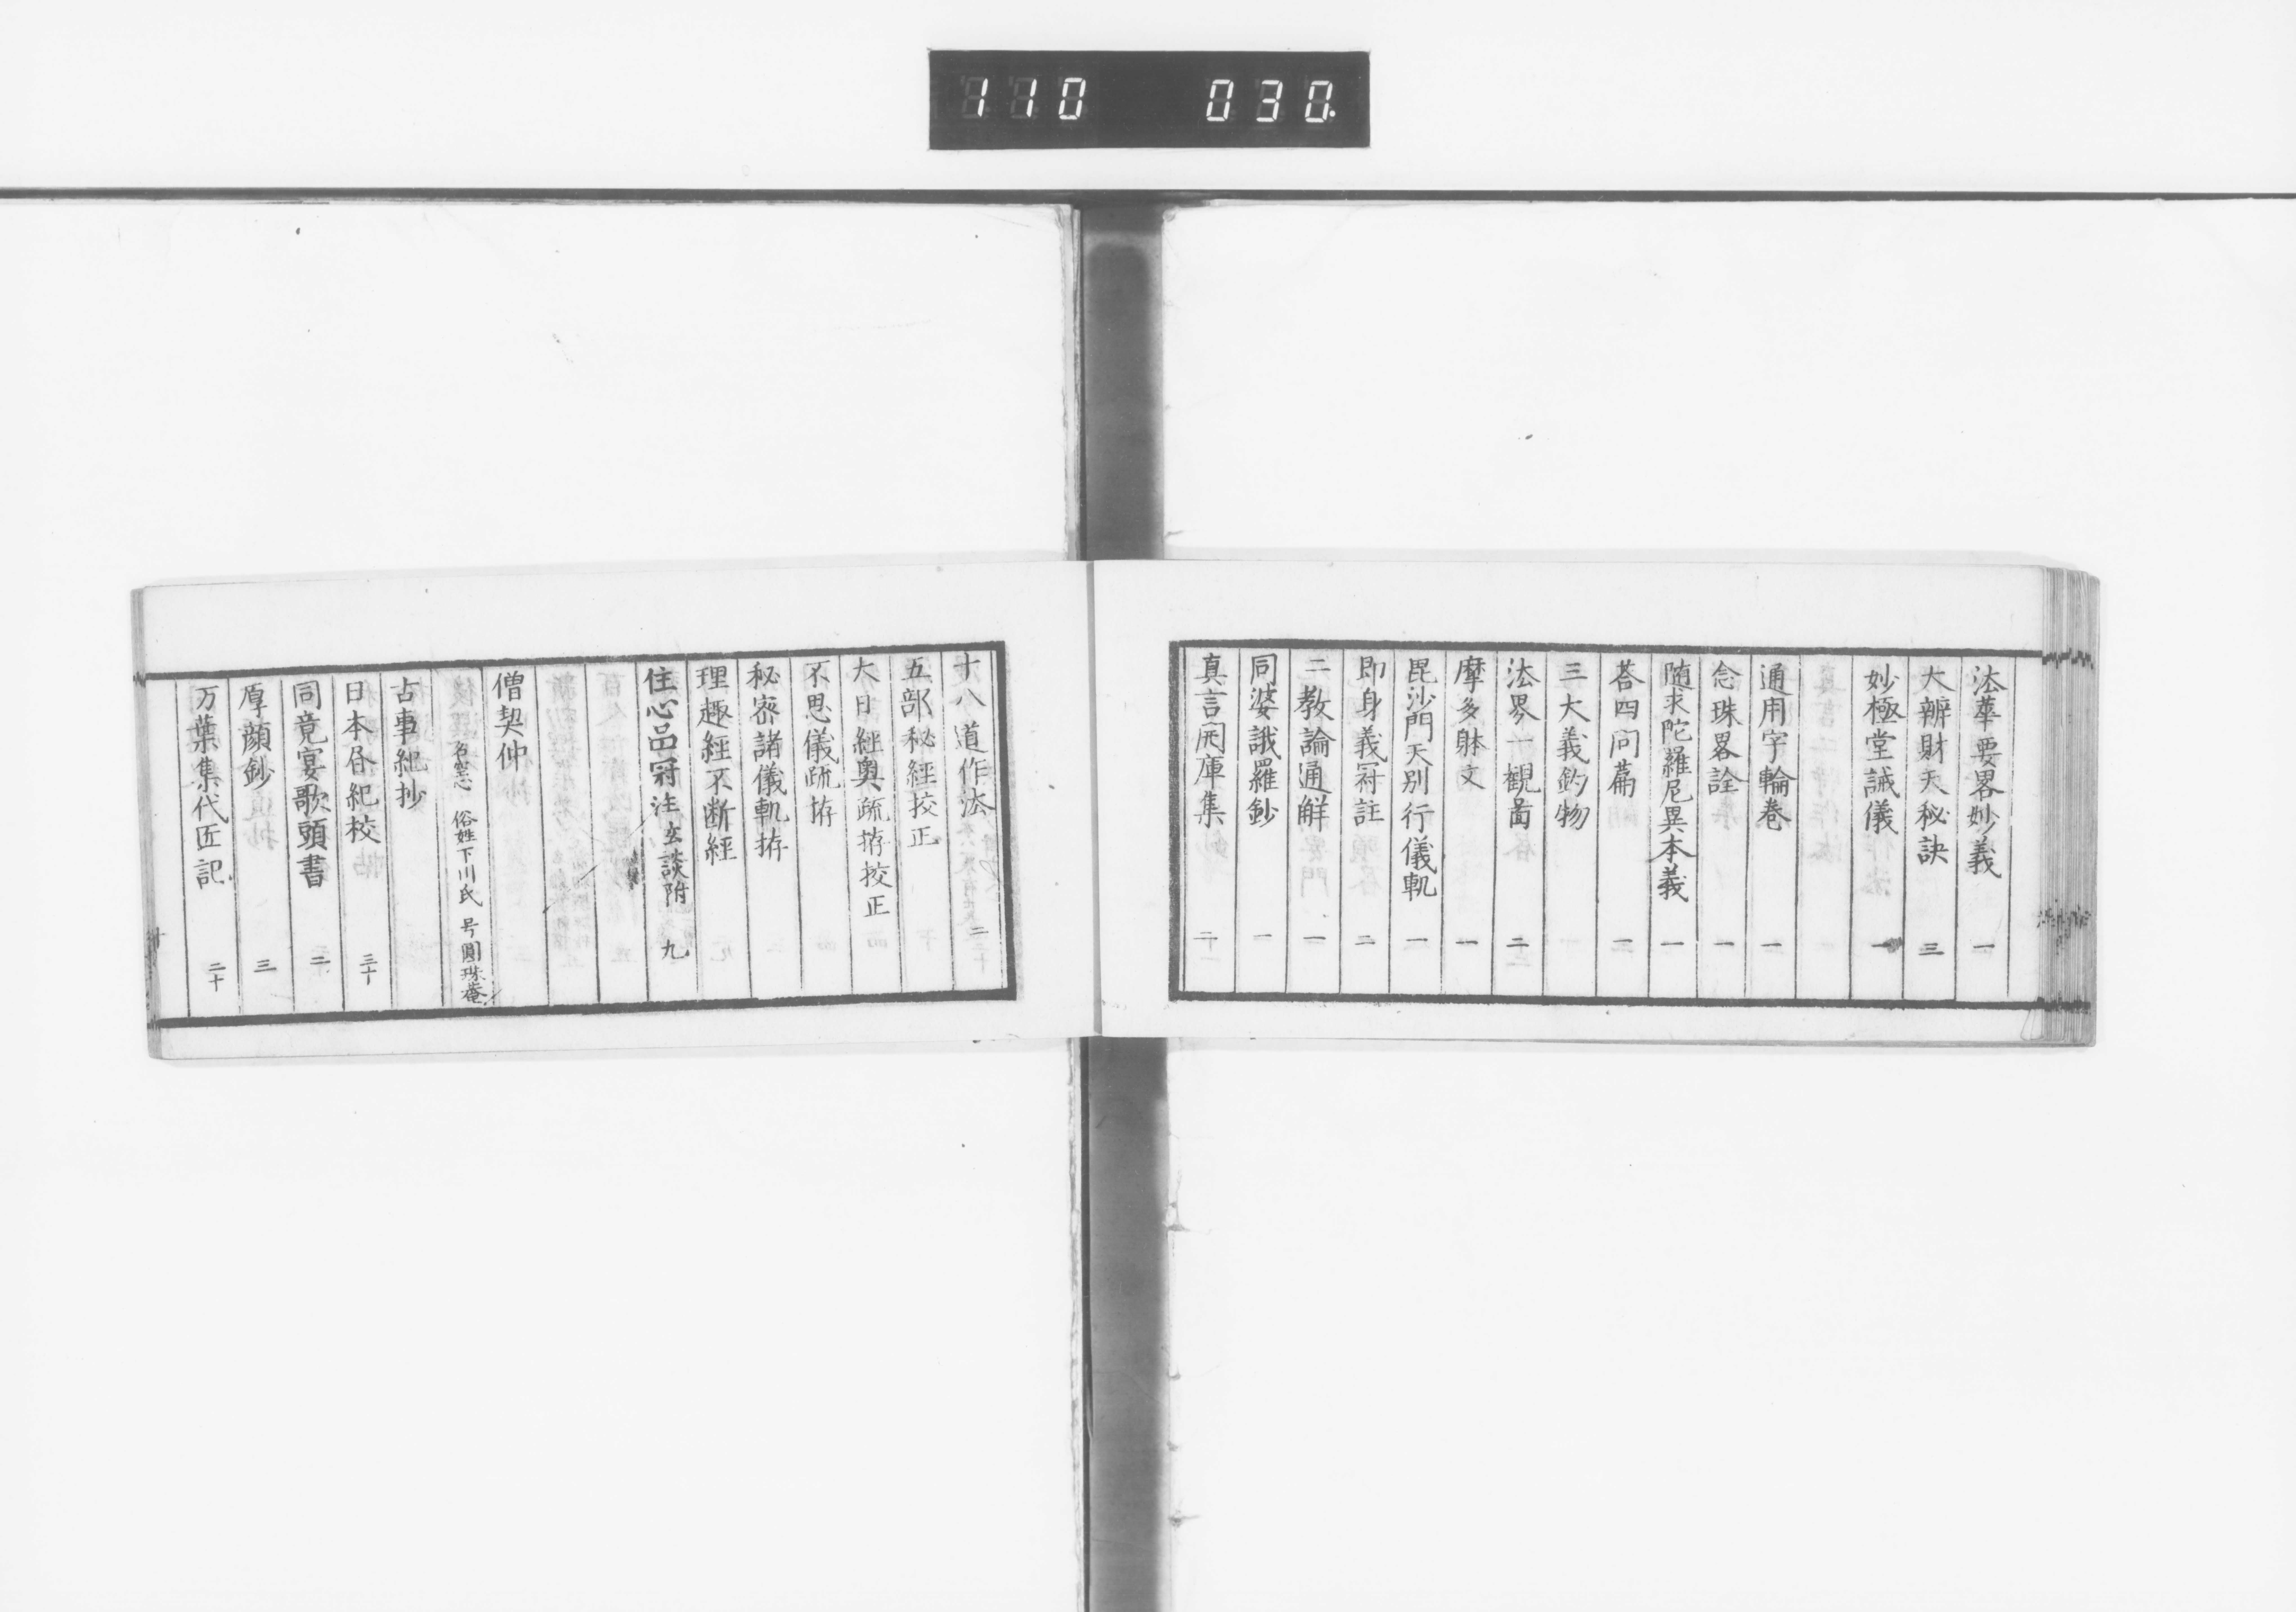 110 030
法華要畧妙義 一
大辨財天秘訣 三
妙極堂誡儀 一
通用字輪巻 一
念珠畧詮 一
随求陀羅尼異本義 一
荅四問萹 二
三大義釣物
法界一観啚 二
摩多躰文 一
毘沙門天別行儀軌 一
即身義冠註 二
二教論通解 一
同婆誐羅鈔 一
真言開庫集 二
十八道作法 二
五部秘經挍正
大日經奥疏挍正
不思儀疏
秘密諸儀軌
理趣經不断經
住心品冠注 玄談附 九
僧契仲
俗姓下川氏 号圓珠菴
古事紀抄
日本昏紀校 三十
同竟宴歌頭書 二
厚顔鈔 三
万葉集代匠記 二十